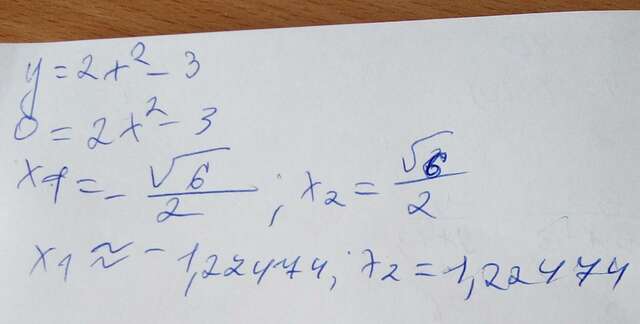 y = 2x² - 3
0 = 2x² - 3
x₁ = - √6/2 ; x₂ = √6/2
x₁ ≈ - 1,22474; x₂ = 1,22474